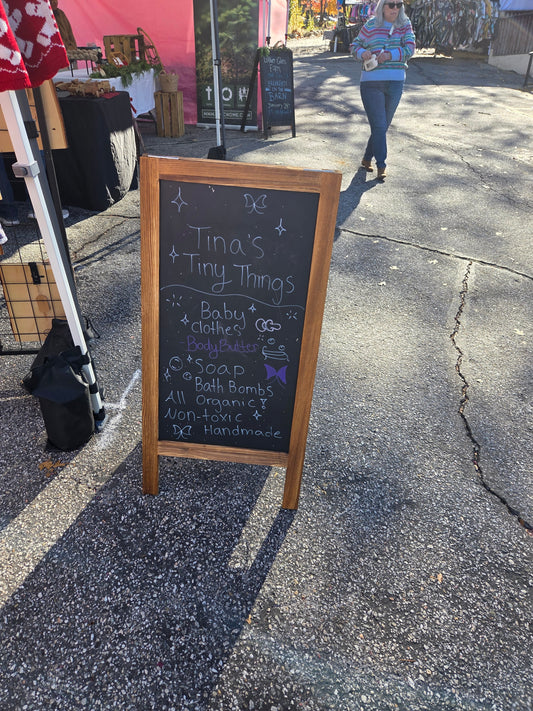 Tina's
Tiny Things
Baby
clothes
Body Butter
Soap
Bath Bombs
All Organic!
Non-toxic
Handmade
BARN